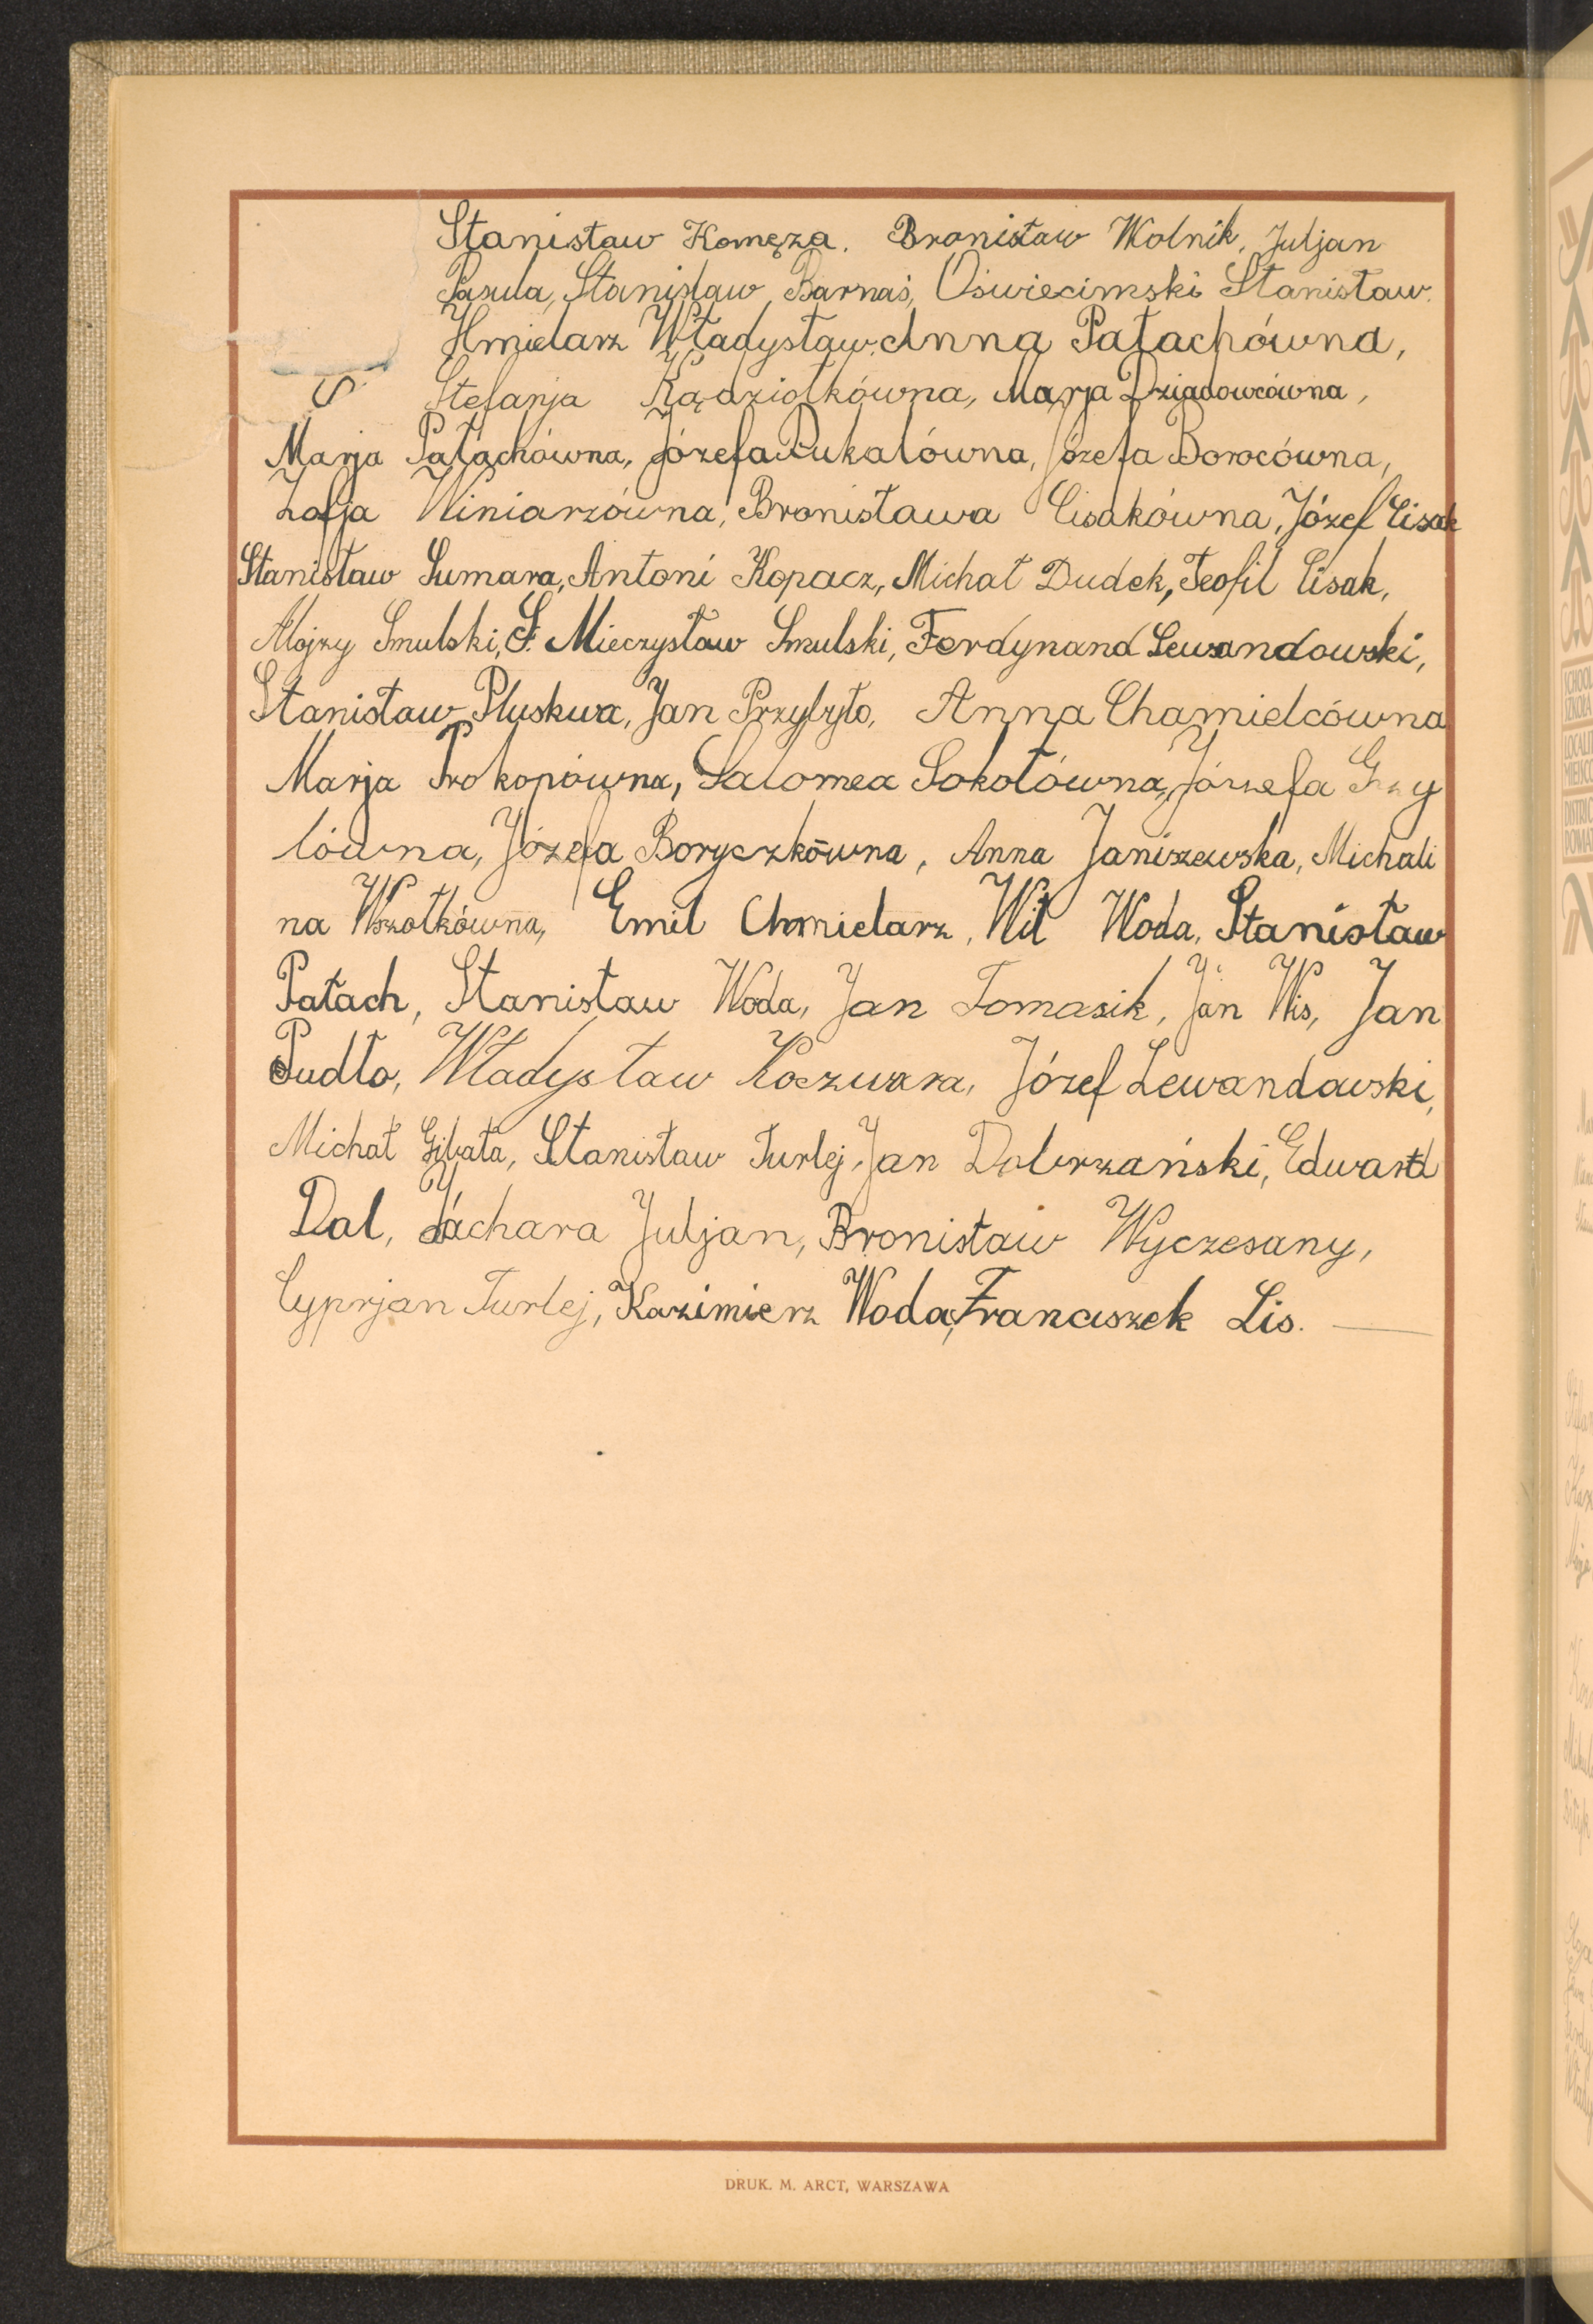 Stanisław Komęza. Bronisław Wolnik, Juljan
Pasula, Stanisław Barnaś, Oświecimski Stanisław.
Hmielarz Władysław. Anna Pałachówna,
S Stefanja Kądziołkówna, Marja Dziadowcówna,
Marja Pałachówna, Józefa Pukalówna, Józefa Borocówna,
Zofja Winiarzówna, Bronisława Cisakówna, Józef Cisak
Stanisław Sumara, Antoni Kopacz, Michał Dudek, Teofil Cisak,
Alojzy Smulski, S. Mieczysław Smulski, Ferdynand Lewandowski,
Stanisław Pluskwa, Jan Przybyło, Anna Chamielcówna
Marja Prokopówna, Salomea Sokołówna, Józefa Grzy
lówna, Józefa Boryczkówna, Anna Janiszewska, Michali
na Wszołkówna, Emil Chmielarz, Wit Woda, Stanisław
Pałach, Stanisław Woda, Jan Tomasik, Jan Wis, Jan
Pudło, Władysław Koczwara, Józef Lewandowski,
Michał Gibała, Stanisław Turlej, Jan Dobrzański, Edward
Dal, Jachara Juljan, Bronisław Wyczesany,
Cyprjan Turlej, Kazimierz Woda, Franciszek Lis.
DRUK. M. ARCT, WARSZAWA